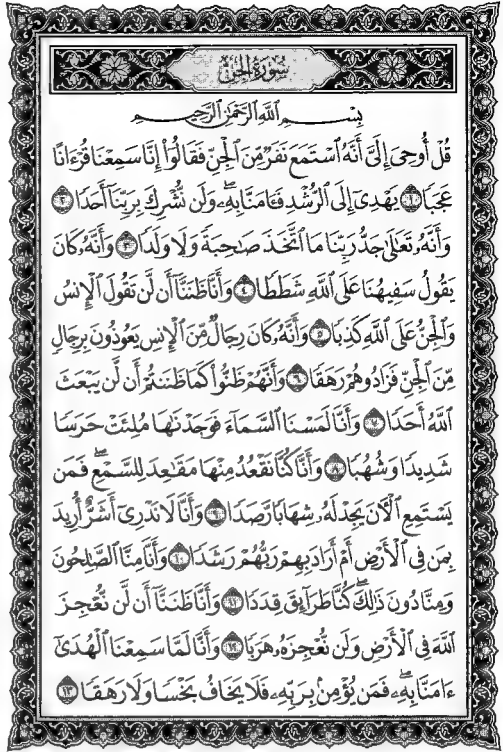 سُورَةُ الجِنِّ
بِسْمِ اللَّهِ الرَّحْمَٰنِ الرَّحِيمِ
قُلْ أُوحِىَ إِلَىَّ أَنَّهُ ٱسْتَمَعَ نَفَرٌ مِّنَ ٱلْجِنِّ فَقَالُوٓا۟ إِنَّا سَمِعْنَا قُرْءَانًا
عَجَبًا ١ يَهْدِىٓ إِلَى ٱلرُّشْدِ فَـَٔامَنَّا بِهِۦ وَلَن نُّشْرِكَ بِرَبِّنَآ أَحَدًا ٢
وَأَنَّهُۥ تَعَٰلَىٰ جَدُّ رَبِّنَا مَا ٱتَّخَذَ صَٰحِبَةً وَلَا وَلَدًا ٣ وَأَنَّهُۥ كَانَ
يَقُولُ سَفِيهُنَا عَلَى ٱللَّهِ شَطَطًا ٤ وَأَنَّا ظَنَنَّآ أَن لَّن تَقُولَ ٱلْإِنسُ
وَٱلْجِنُّ عَلَى ٱللَّهِ كَذِبًا ٥ وَأَنَّهُۥ كَانَ رِجَالٌ مِّنَ ٱلْإِنسِ يَعُوذُونَ بِرِجَالٍ
مِّنَ ٱلْجِنِّ فَزَادُوهُمْ رَهَقًا ٦ وَأَنَّهُمْ ظَنُّوا۟ كَمَا ظَنَنتُمْ أَن لَّن يَبْعَثَ
ٱللَّهُ أَحَدًا ٧ وَأَنَّا لَمَسْنَا ٱلسَّمَآءَ فَوَجَدْنَٰهَا مُلِئَتْ حَرَسًا
شَدِيدًا وَشُهُبًا ٨ وَأَنَّا كُنَّا نَقْعُدُ مِنْهَا مَقَٰعِدَ لِلسَّمْعِ ۖ فَمَن
يَسْتَمِعِ ٱلْـَٔانَ يَجِدْ لَهُۥ شِهَابًا رَّصَدًا ٩ وَأَنَّا لَا نَدْرِىٓ أَشَرٌّ أُرِيدَ
بِمَن فِى ٱلْأَرْضِ أَمْ أَرَادَ بِهِمْ رَبُّهُمْ رَشَدًا ١٠ وَأَنَّا مِنَّا ٱلصَّٰلِحُونَ
وَمِنَّا دُونَ ذَٰلِكَ ۖ كُنَّا طَرَآئِقَ قِدَدًا ١١ وَأَنَّا ظَنَنَّآ أَن لَّن نُّعْجِزَ
ٱللَّهَ فِى ٱلْأَرْضِ وَلَن نُّعْجِزَهُۥ هَرَبًا ١٢ وَأَنَّا لَمَّا سَمِعْنَا ٱلْهُدَىٰٓ
ءَامَنَّا بِهِۦ ۖ فَمَن يُؤْمِنۢ بِرَبِّهِۦ فَلَا يَخَافُ بَخْسًا وَلَا رَهَقًا ١٣